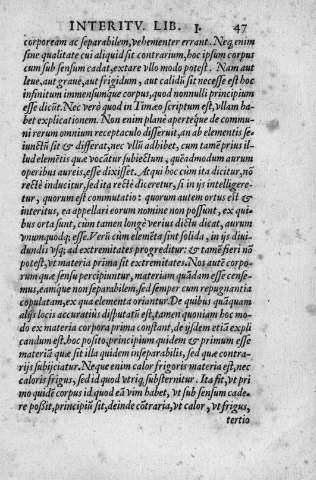 INTERITV. LIB. I. 47
corpoream ac separabilem, vehementer errant. Neq; enim
sine qualitate cui aliquid sit contrarium, hoc ipsum corpus
cum sub sensum cadat, extare vllo modo potest. Nam aut
leue, aut graue, aut frigidum, aut calidū sit necesse est hoc
infinitum immensumque corpus, quod nonnulli principium
esse dicūt. Nec verò quod in Timæo scriptum est, vllam ha-
bet explicationem. Non enim planè aperteq́ue de commu-
ni rerum omnium receptaculo disseruit, an ab elementis se-
iunctū sit & differat, nec vllū adhibet, cum tamē prius il-
lud elemētis quæ vocātur subiectum, quēadmodum aurum
operibus aureis, esse dixisset. Atqui hoc cum ita dicitur, nō
rectè inducitur, sed ita rectè diceretur, si in ijs intelligere-
tur, quorum est commutatio: quorum autem ortus est &
interitus, ea appellari eorum nomine non possunt, ex qui-
bus orta sunt, cùm tamen longè verius dictu dicat, aurum
vnumquodq; esse. Verū cùm elemēta sint solida, in ijs diui-
dundis vsq; ad extremitates progreditur: & tamē fieri nō
potest, vt materia prima sit extremitates. Nos autē corpo-
rum quæ sensu percipiuntur, materiam quādam esse cense-
mus, eamq́ue non separabilem, sed semper cum repugnantia
copulatam, ex qua elementa oriantur. De quibus quāquam
alijs locis accuratiùs disputatū est, tamen quoniam hoc mo-
do ex materia corpora prima constant, de ijsdem etiā expli
candum est. hoc posito, principium quidem & primum esse
materiā quæ sit illa quidem inseparabilis, sed quæ contra-
rijs subijciatur. Neque enim calor frigoris materia est, nec
caloris frigus, sed id quod vtriq; substernitur. Ita fit, vt pri
mo quidē corpus id quod eā vim habet, vt sub sensum cade-
re possit, principiū sit, deinde cōtraria, vt calor, vt frigus,
tertio